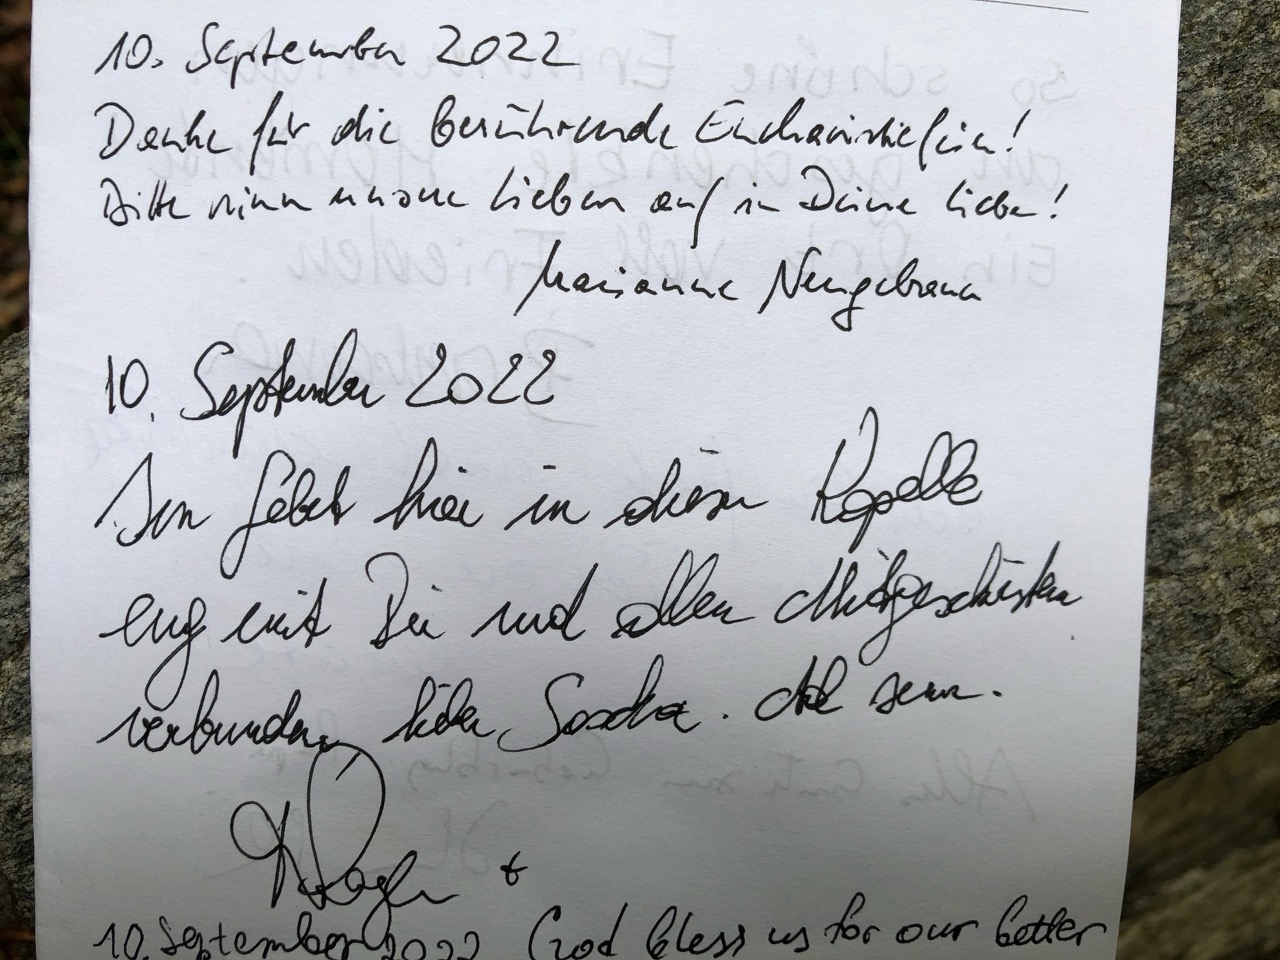 10. September 2022
Danke für die berührende Eucharistiefeier!
Bitte nimm unsere Lieben auf in Deine Liebe!
Marianne Neugebauer
10. September 2022
Im Gebet hier in dieser Kapelle
eng mit Dir und allen
verbunden, lieber
10. September 2022 God bless us for our better